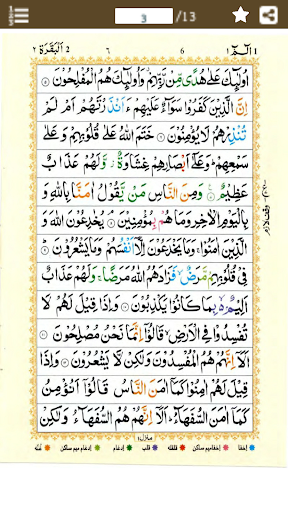 3 /13
البقرة ٢ ٦ 6 الٓمّٓ ١
اُولٰٓئِكَ عَلٰى هُدًى مِّنْ رَّبِّهِمْ وَاُولٰٓئِكَ هُمُ الْمُفْلِحُوْنَ
اِنَّ الَّذِيْنَ كَفَرُوْا سَوَآءٌ عَلَيْهِمْ ءَاَنْذَرْتَهُمْ اَمْ لَمْ
تُنْذِرْهُمْ لَا يُؤْمِنُوْنَ خَتَمَ اللّٰهُ عَلٰى قُلُوْبِهِمْ وَعَلٰى
سَمْعِهِمْ وَعَلٰٓى اَبْصَارِهِمْ غِشَاوَةٌ وَّلَهُمْ عَذَابٌ
عَظِيْمٌ وَمِنَ النَّاسِ مَنْ يَّقُوْلُ اٰمَنَّا بِاللّٰهِ وَ
بِالْيَوْمِ الْاٰخِرِ وَمَا هُمْ بِمُؤْمِنِيْنَ يُخٰدِعُوْنَ اللّٰهَ وَ
الَّذِيْنَ اٰمَنُوْا وَمَا يَخْدَعُوْنَ اِلَّآ اَنْفُسَهُمْ وَمَا يَشْعُرُوْنَ
فِيْ قُلُوْبِهِمْ مَّرَضٌ فَزَادَهُمُ اللّٰهُ مَرَضًا وَلَهُمْ عَذَابٌ
اَلِيْمٌ بِمَا كَانُوْا يَكْذِبُوْنَ وَاِذَا قِيْلَ لَهُمْ لَا
تُفْسِدُوْا فِي الْاَرْضِ قَالُوْٓا اِنَّمَا نَحْنُ مُصْلِحُوْنَ
اَلَآ اِنَّهُمْ هُمُ الْمُفْسِدُوْنَ وَلٰكِنْ لَّا يَشْعُرُوْنَ وَاِذَا
قِيْلَ لَهُمْ اٰمِنُوْا كَمَآ اٰمَنَ النَّاسُ قَالُوْٓا اَنُؤْمِنُ
كَمَآ اٰمَنَ السُّفَهَآءُ اَلَآ اِنَّهُمْ هُمُ السُّفَهَآءُ وَلٰكِنْ
منزل ١
اخفا اخفا میم ساکن قلقله قلب ادغام ادغام میم ساکن غنه